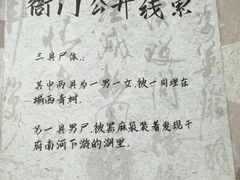 衙门公开线索
三具尸体：
其中两具为一男一女，被一同埋在
城西青树，
另一具男尸，被黑麻袋装着发现于
府南河下游的洞里。